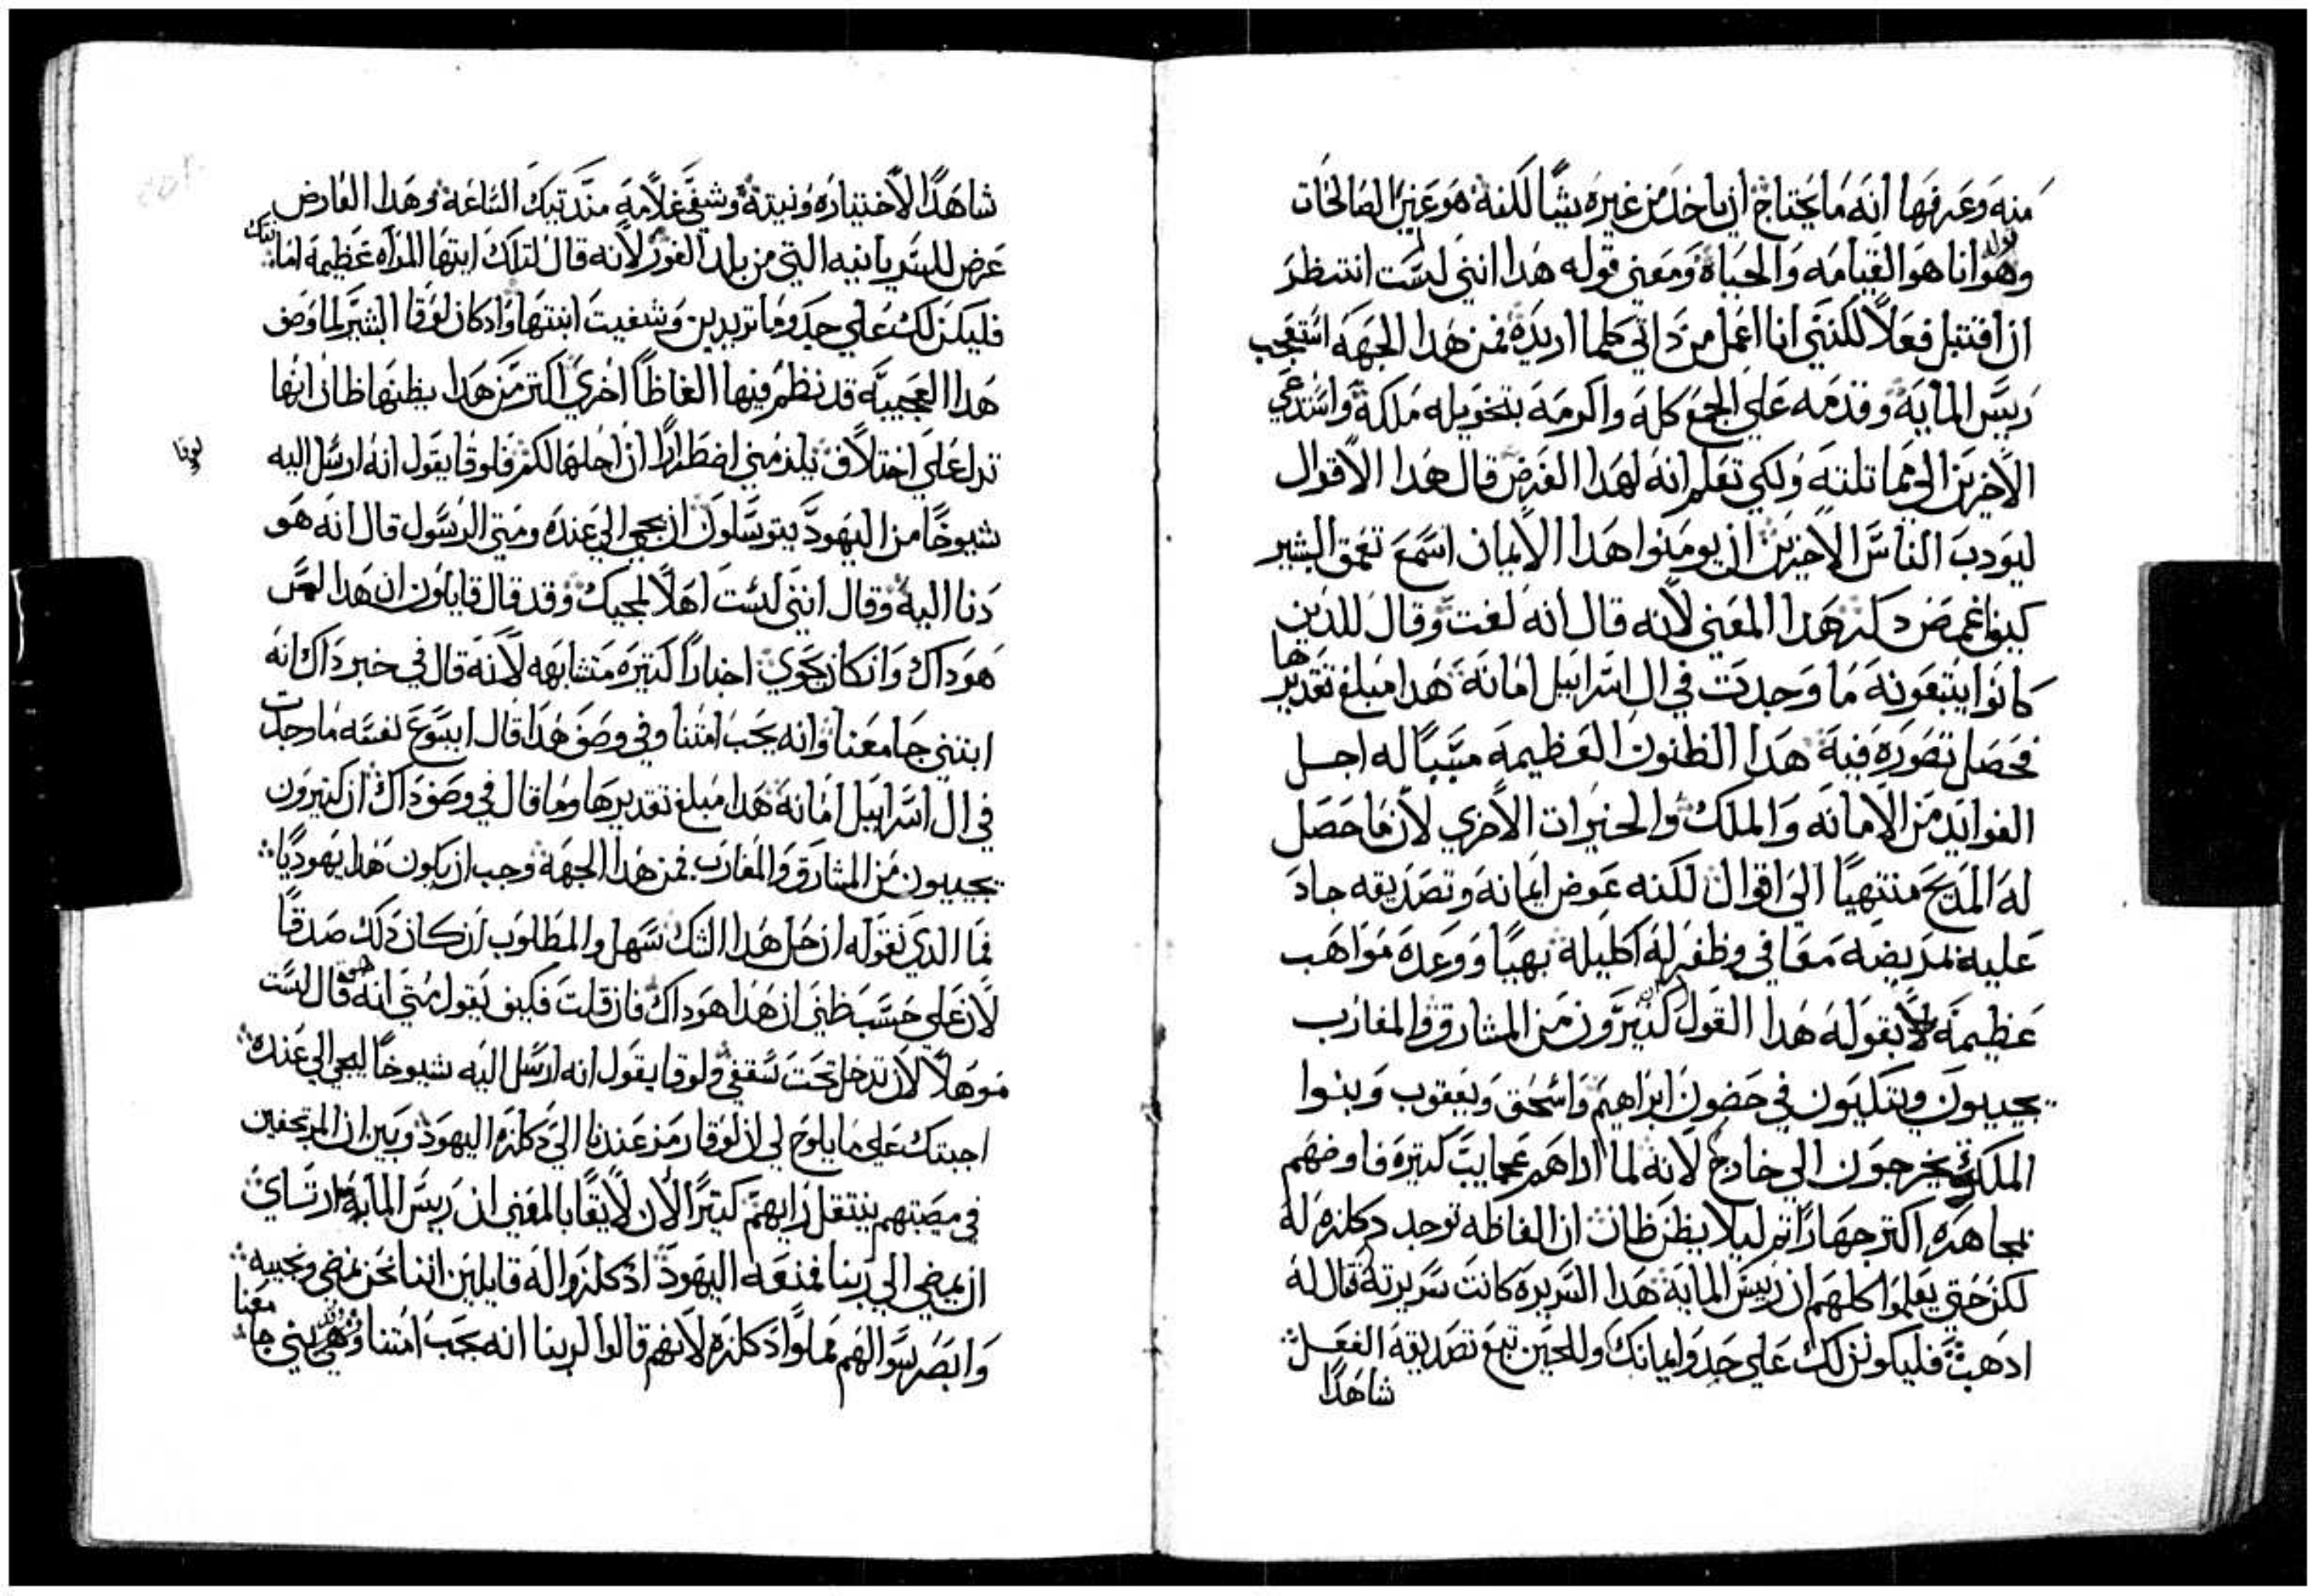 منه وعرفها انه ما يحتاج ان ياخد من غيره شيًا لكنه هو عين الصالحات
وهو قوله انا هو القيامه والحياه ومعني قوله هدا انني لست انتظر
ان اقتبل فعلاً لكنني انا اعمل من داتي كلما اريده فمن هدا الجهه استعجب
ريس المايه وقدمه علي الجمع كله واكرمه بتخويله ملكه واستدعي
الاخرين الي مماتلته ولكي تعلم انه لهدا الغرض قال هدا الاقوال
ليودب الناس الاخرين ان يومنوا هدا الايمان اسمع تعمق البشير
كيف اغمض دكره هدا المعني لانه قال انه لفت وقال للدين
كانوا يتبعونه ما وجدت في ال اسراييل امانه هدا مبلغ تقديرها
فحصل تصوره فيه هدا الظنون العظيمه سببًا له اجل
الفوايد من الامانه والملك والخيرات الاخري لان ما حصل
له المديح منتهيًا الي اقوال لكنه عوض ايمانه وتصديقه جاد
عليه بمريضه معافي وظفر له اكليله بهيًا ووعده مواهب
عظيمه بقوله هدا القول كتيرون من المشارق والمغارب
يجييون ويتكيون في حضون ابراهيم واسحق ويعقوب وبنوا
الملكوت يخرجون الي خارج لانه لما اراهم عجايب كتيره فاوضهم
بمجاهره اكتر جهارًا تم ليلا يظن ظان ان الفاظه توجد دكلزه له
لكن حتي يعلموا كلهم ان ريس المايه هدا السريره كانت سريرته قال له
ادهب فليكون لك علي حدو ايمانك وللحين تبع تصديقه الفعل
شاهدًا
شاهدًا لاختياره ونيته وشفي غلامه مند تيك الساعه وهدا العارض
عرض للسريانيه التي من بلد الغور لانه قال لتلك ايتها المراه عظيمه امانتك
فليكن لك علي حدو ما تريدين وشفيت ابنتها واد كان لوقا البشير لما وصف
هدا العجيبه قد نظم فيها الفاظًا اخري اكتر من هدا يظنها ظان انها
تدل علي اختلاف يلزمني اضطرارًا ان احلها لكم فلوقا يقول انه ارسل اليه
لوقا
شيوخًا من اليهود يتوسلون ان يجي الي عنده ومتي الرسول قال انه هو
دنا اليه وقال انني لست اهلاً لمجيك وقد قال قايلون ان هدا ليس
هو داك وان كان يحوي اخبارًا كتيره متشابهه لانه قال في خبر داك انه
ابتني جامعنا وانه يحب امتنا وفي وصف هدا قال ايسوع نفسه ما وجدت
في ال اسراييل امانه هدا مبلغ تقديرها وما قال في وصف داك ان كتيرون
يجييون من المشارق والمغارب فمن هدا الجهه وجب ان يكون هدا يهوديًا
فما الدي نقوله ان حل هدا الشك سهل والمطلوب ان كان دلك صدقًا
لان علي حسب ظني ان هدا هو داك فان قلت فكيف يقول متي انه هو قال لست
موهلاً لان تدخل تحت سقفي ولوقا يقول انه ارسل اليه شيوخًا ليجي الي عنده
اجبتك علي ما يلوح لي ان لوقا رمز عندنا الي دكلزه اليهود وبين ان المرتجفين
في مصيبتهم ينتقل رايهم كتيرًا لان لايقًا بالمعني ان ريس المايه لما ارتاي
ان يمضي الي ربنا فمنعه اليهود اد كلزوا له قايلين اننا نحن نمضي ونجيبه
وابصر سوالهم مملوًا دكلزه لانهم قالوا لربنا انه يحب امتنا وهو بني جامعنا